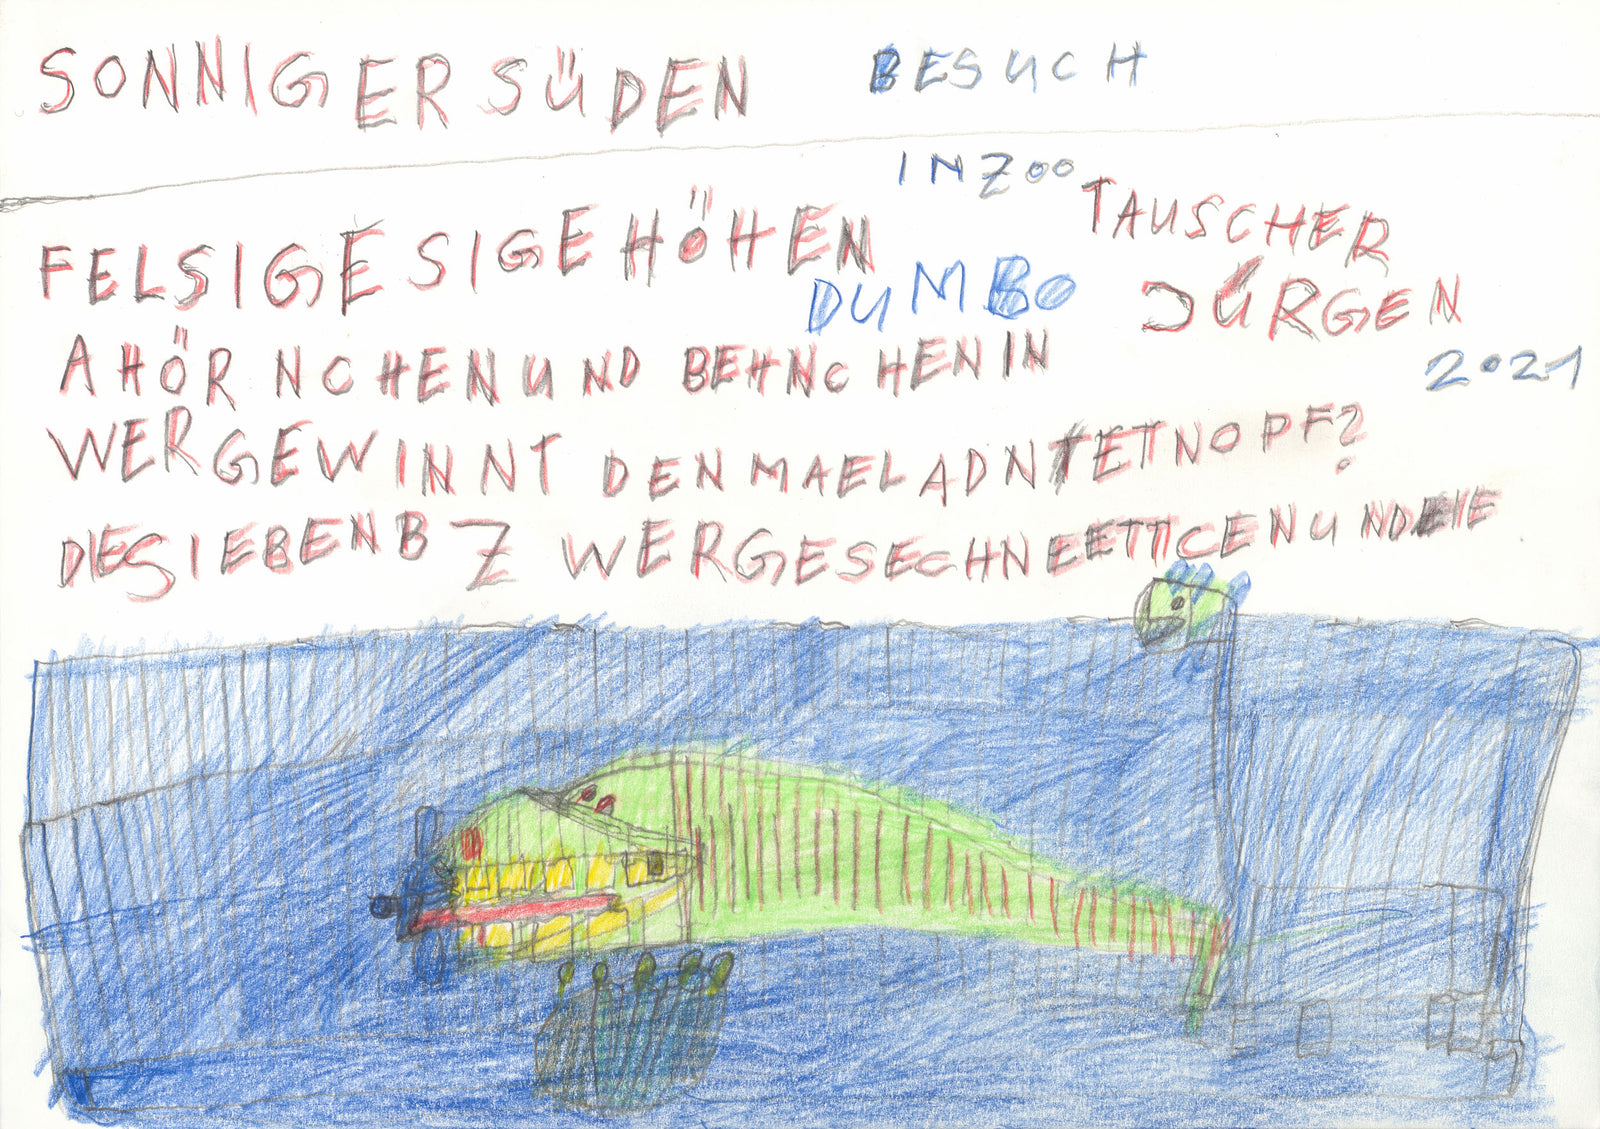 SONNIGER SÜDEN
BESUCH
IN ZOO
TAUSCHER
JÜRGEN
2021
FELSIGE SIGE HÖHEN
DUMBO
AHÖRNCHEN UND BEHNCHEN IN
WER GEWINNT DEN MAELADNTETNOPF?
DIE SIEBEN B Z WERGE SECHNEETTCEN UND